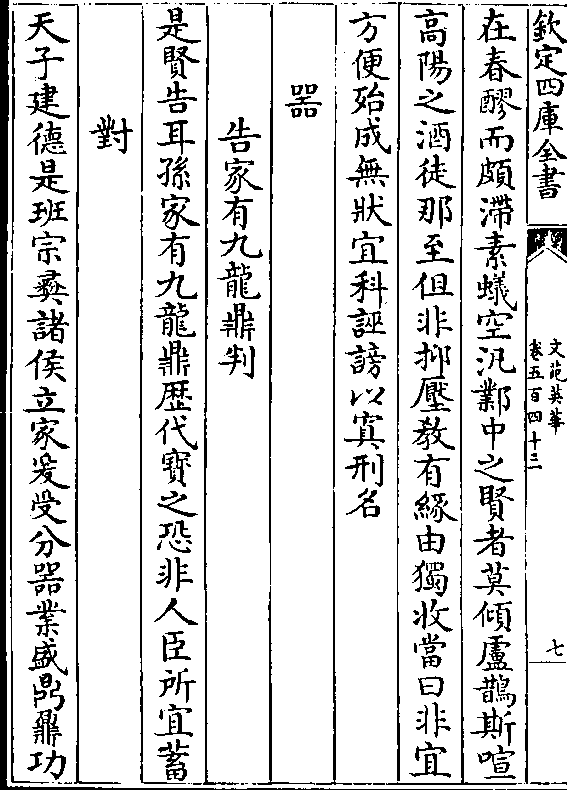 欽定四庫全書
文苑英華
卷五百四十三
七
在春醪而頗滯素蟻空汎酇中之賢者莫傾盧鵲斯喧
高陽之酒徒那至但非抑壓教有緣由獨收當曰非宜
方便殆成無狀宜科誣謗以寘刑名
器
告家有九龍鼎判
是賢告耳孫家有九龍鼎歴代寶之恐非人臣所宜蓄
對
天子建德是班宗彝諸侯立家爰受分器業盛鼎功